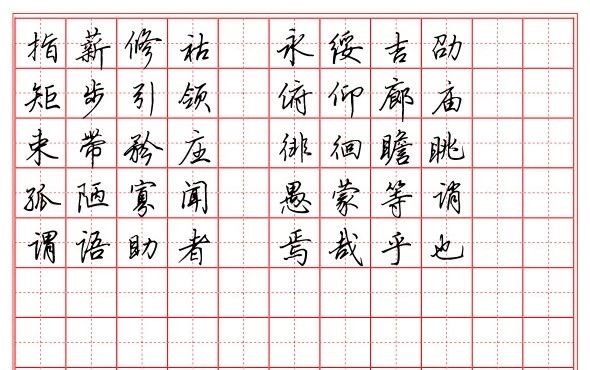 指薪修祜 永绥吉劭
矩步引领 俯仰廊庙
束带矜庄 徘徊瞻眺
孤陋寡闻 愚蒙等诮
谓语助者 焉哉乎也